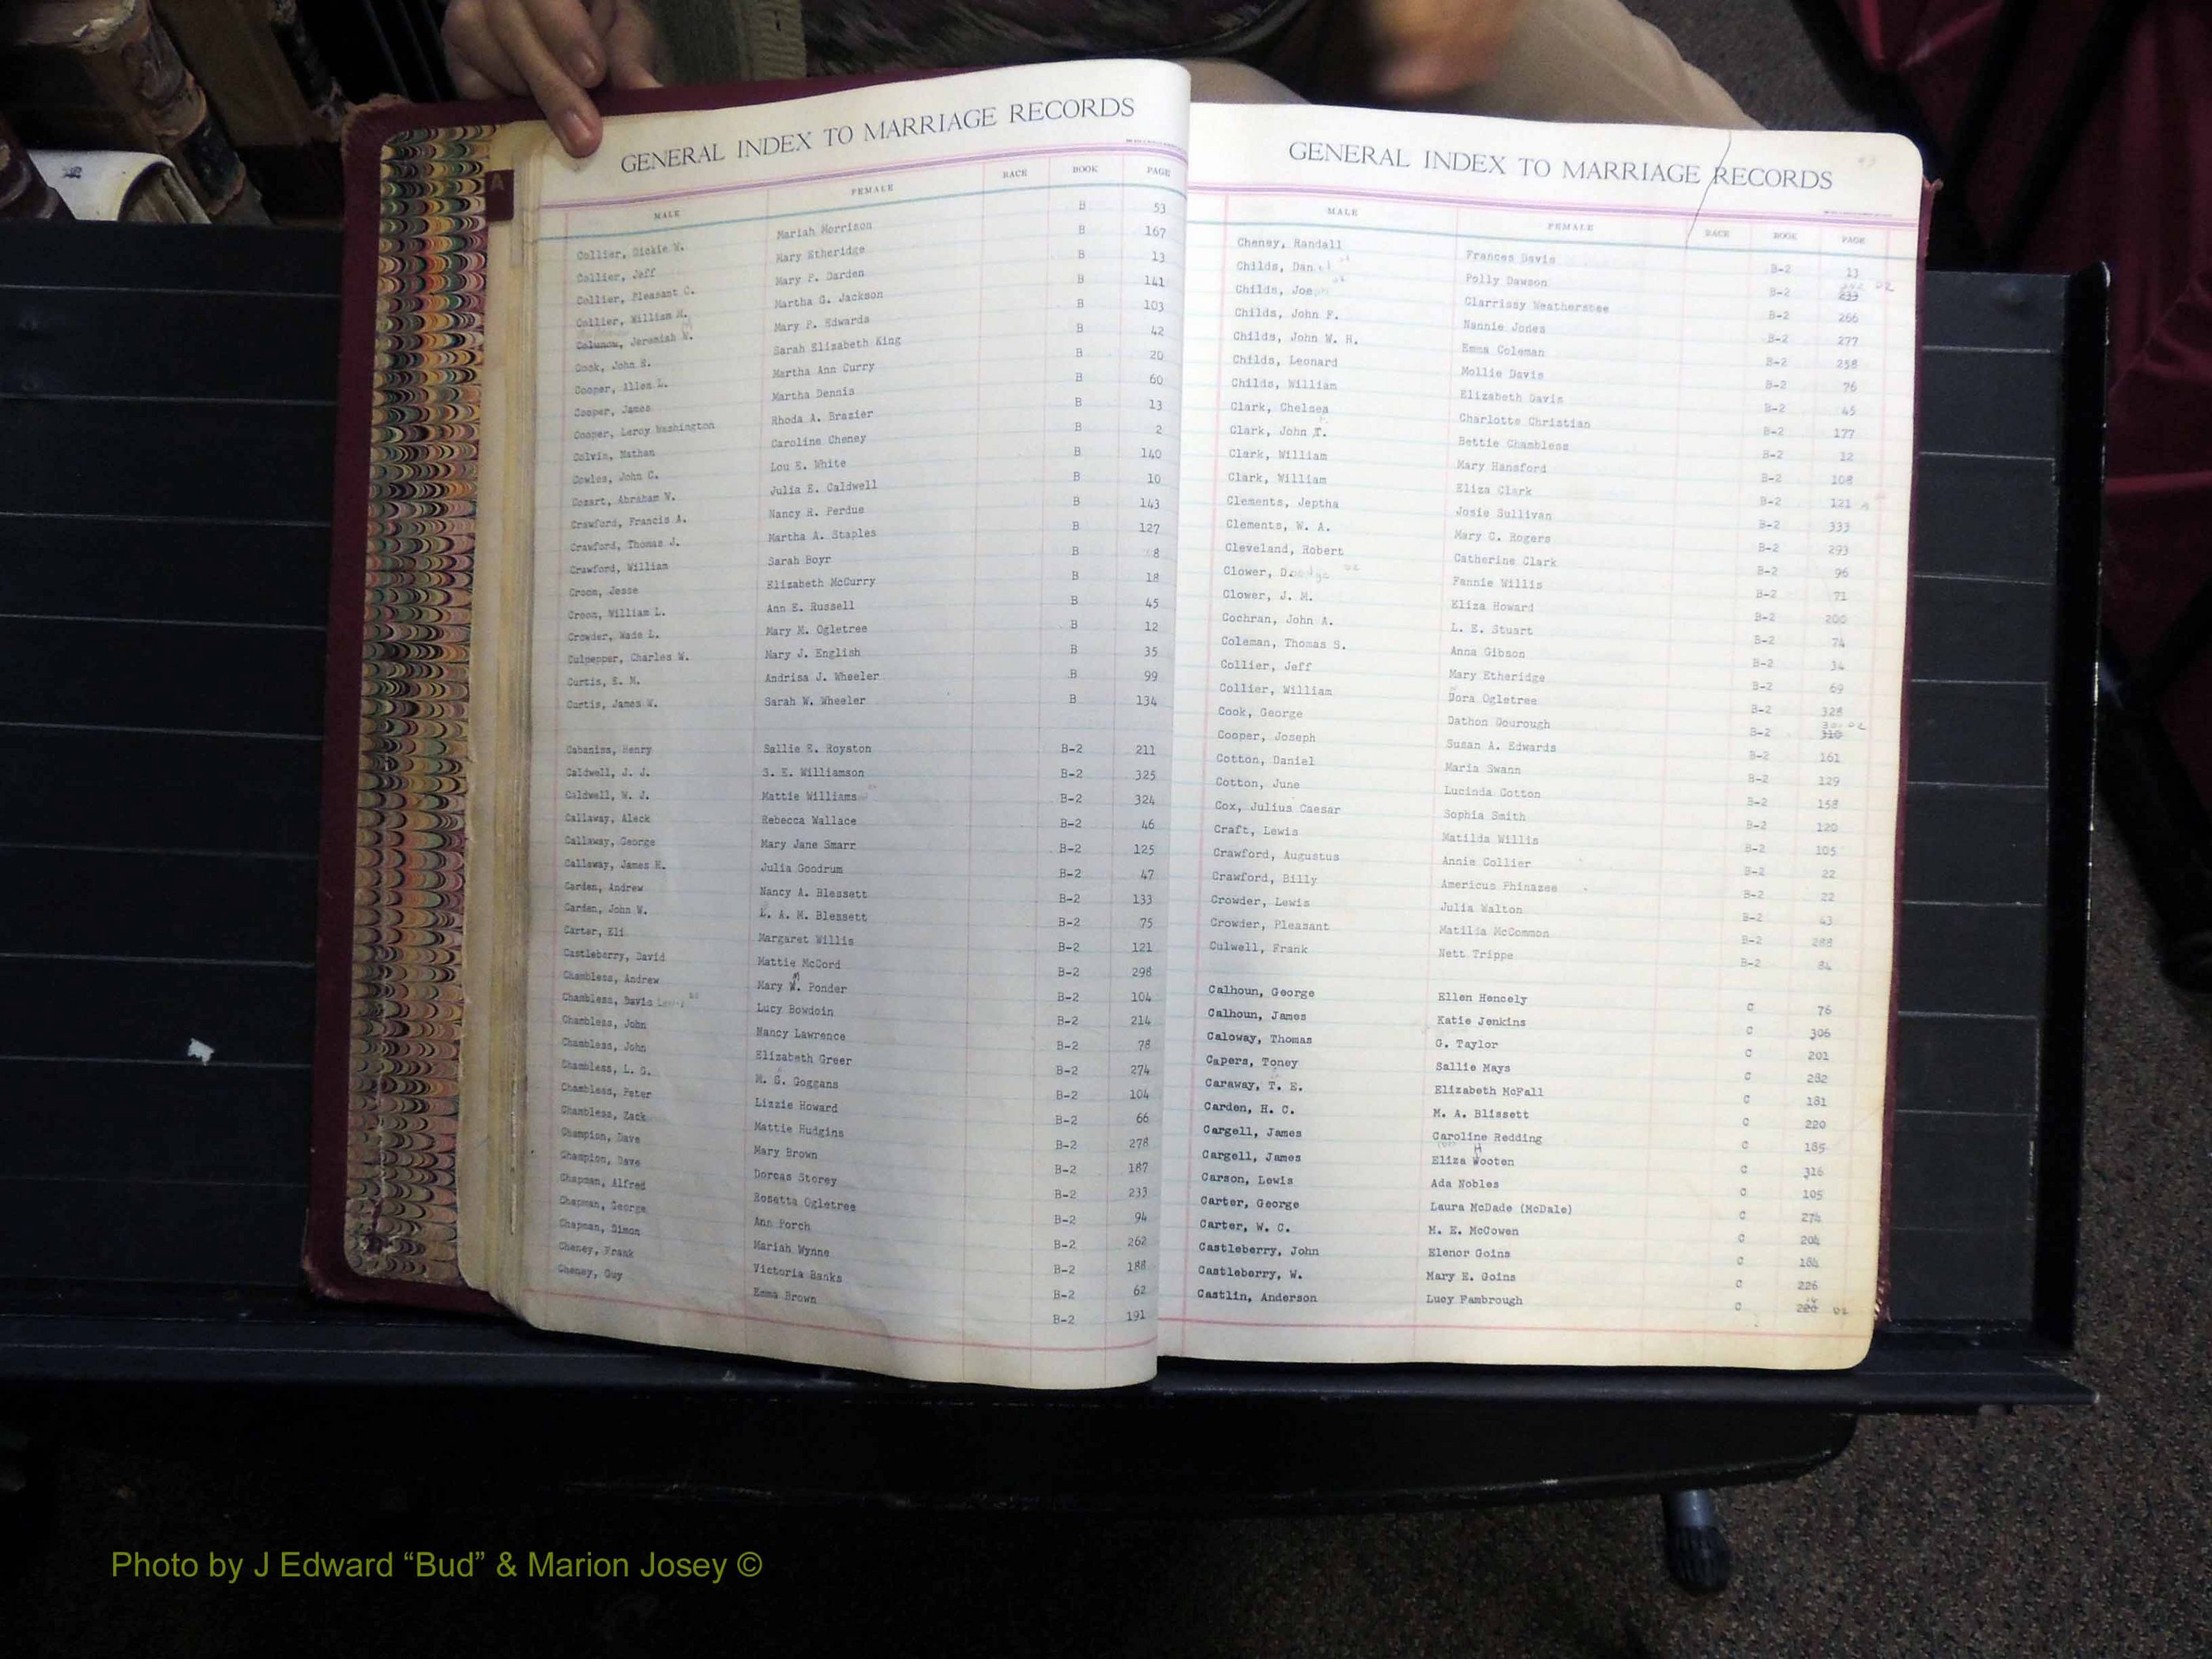 GENERAL INDEX TO MARRIAGE RECORDS
MALE FEMALE RACE BOOK PAGE
Collier, Dickie W. Mariah Morrison B 53
Collier, Jeff Mary Etheridge B 167
Collier, Pleasant C. Mary P. Darden B 13
Collier, William M. Martha G. Jackson B 141
Jeremiah W. Mary P. Edwards B 103
Cook, John R. Sarah Elizabeth King B 42
Cooper, Allen L. Martha Ann Curry B 20
Cooper, James Martha Dennis B 60
Cooper, Leroy Washington Rhoda A. Brazier B 13
Colvin, Nathan Caroline Cheney B 2
Cowles, John C. Lou E. White B 140
Cozart, Abraham W. Julia E. Caldwell B 10
Crawford, Francis A. Nancy R. Perdue B 143
Crawford, Thomas J. Martha A. Staples B 127
Crawford, William Sarah Boyr B 8
Croom, Jesse Elizabeth McCurry B 18
Croom, William L. Ann E. Russell B 45
Crowder, Wade L. Mary M. Ogletree B 12
Culpepper, Charles W. Mary J. English B 35
Curtis, E. M. Andrisa J. Wheeler B 99
Curtis, James W. Sarah W. Wheeler B 134
Cabaniss, Henry Sallie E. Royston B-2 211
Caldwell, J. J. S. E. Williamson B-2 325
Caldwell, W. J. Mattie Williams B-2 324
Callaway, Aleck Rebecca Wallace B-2 46
Callaway, George Mary Jane Smarr B-2 125
Callaway, James H. Julia Goodrum B-2 47
Carden, Andrew Nancy A. Blessett B-2 133
Carden, John W. L. A. M. Blessett B-2 75
Carter, Eli Margaret Willis B-2 121
Castleberry, David Mattie McCord B-2 298
Chambless, Andrew Mary W. Ponder B-2 104
Chambless, Davis Lucy Bowdoin B-2 214
Chambless, John Nancy Lawrence B-2 78
Chambless, John Elizabeth Greer B-2 274
Chambless, L. G. M. G. Goggans B-2 104
Chambless, Peter Lizzie Howard B-2 66
Chambless, Zack Mattie Hudgins B-2 278
Champion, Dave Mary Brown B-2 187
Champion, Dave Dorcas Storey B-2 233
Chapman, Alfred Rosetta Ogletree B-2 94
Chapman, George Ann Porch B-2 262
Chapman, Simon Mariah Wynne B-2 188
Cheney, Frank Victoria Banks B-2 62
Cheney, Guy Emma Brown B-2 191
GENERAL INDEX TO MARRIAGE RECORDS
MALE FEMALE RACE BOOK PAGE
Cheney, Randall Frances Davis B-2 13
Childs, Dan Polly Dawson B-2 233
Childs, Joe Clarrissy Weathersbee B-2 266
Childs, John F. Nannie Jones B-2 277
Childs, John W. H. Emma Coleman B-2 258
Childs, Leonard Mollie Davis B-2 76
Childs, William Elizabeth Davis B-2 45
Clark, Chelsea Charlotte Christian B-2 177
Clark, John T. Bettie Chambless B-2 12
Clark, William Mary Hansford B-2 108
Clark, William Eliza Clark B-2 121
Clements, Jeptha Josie Sullivan B-2 333
Clements, W. A. Mary C. Rogers B-2 293
Cleveland, Robert Catherine Clark B-2 96
Clower, Fannie Willis B-2 71
Clower, J. M. Eliza Howard B-2 200
Cochran, John A. L. E. Stuart B-2 74
Coleman, Thomas S. Anna Gibson B-2 34
Collier, Jeff Mary Etheridge B-2 69
Collier, William Dora Ogletree B-2 328
Cook, George Dathon Gourough B-2 310
Cooper, Joseph Susan A. Edwards B-2 161
Cotton, Daniel Maria Swann B-2 129
Cotton, June Lucinda Cotton B-2 158
Cox, Julius Caesar Sophia Smith B-2 120
Craft, Lewis Matilda Willis B-2 105
Crawford, Augustus Annie Collier B-2 22
Crawford, Billy Americus Phinazee B-2 22
Crowder, Lewis Julia Walton B-2 43
Crowder, Pleasant Matilda McCommon B-2 288
Culwell, Frank Nett Trippe B-2 84
Calhoun, George Ellen Hencely C 76
Calhoun, James Katie Jenkins C 306
Caloway, Thomas G. Taylor C 201
Capers, Toney Sallie Mays C 282
Caraway, T. E. Elizabeth McFall C 181
Carden, H. C. M. A. Blissett C 220
Cargell, James Caroline Redding C 185
Cargell, James Eliza Wooten C 316
Carson, Lewis Ada Nobles C 105
Carter, George Laura McDade (McDale) C 274
Carter, W. C. M. E. McCowen C 204
Castleberry, John Elenor Goins C 184
Castleberry, W. Mary E. Goins C 226
Castlin, Anderson Lucy Fambrough C 220
Photo by J Edward “Bud” & Marion Josey ©